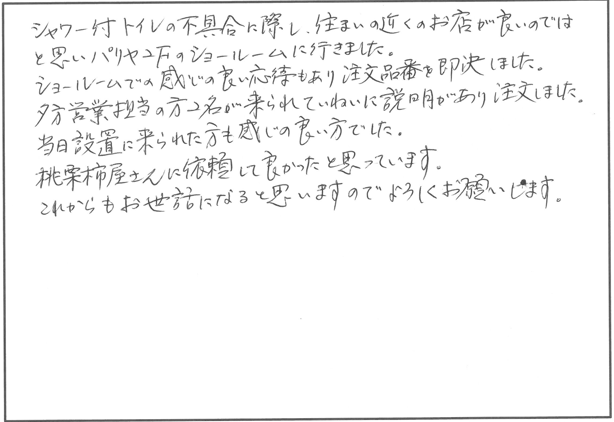 シャワー付トイレの不具合に際し、住まいの近くのお店が良いのでは
と思いパリヤ2Fのショールームに行きました。
ショールームでの感じの良い応待もあり注文品番を即決しました。
夕方営業担当の方2名が来られていねいに説明があり注文しました。
当日設置に来られた方も感じの良い方でした。
桃栗柿屋さんに依頼して良かったと思っています。
これからもお世話になると思いますのでよろしくお願いします。